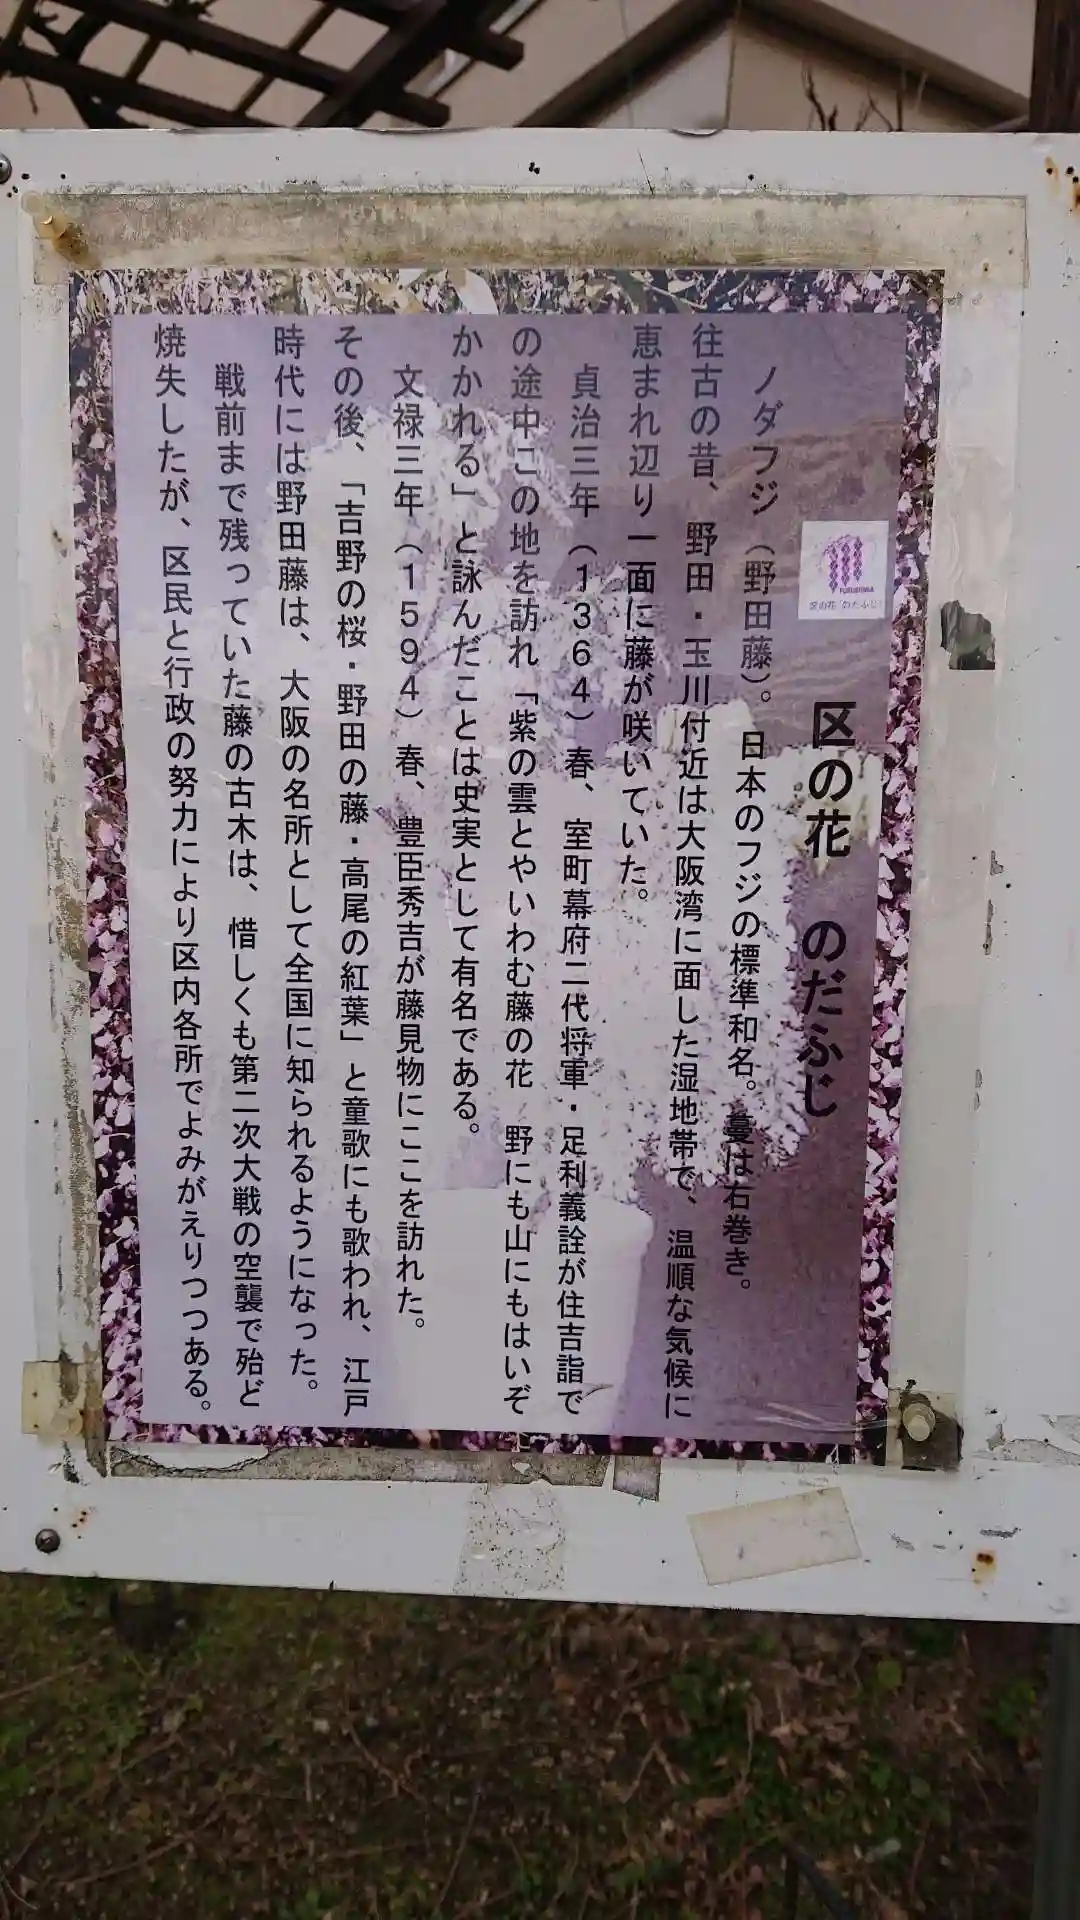 区の花　のだふじ
FUKUSHIMA
区の花「のだふじ」
ノダフジ（野田藤）。日本のフジの標準和名。蔓は右巻き。
往古の昔、野田・玉川付近は大阪湾に面した湿地帯で、温順な気候に
恵まれ辺り一面に藤が咲いていた。
貞治三年（1364）春、室町幕府二代将軍・足利義詮が住吉詣で
の途中この地を訪れ「紫の雲とやいわむ藤の花　野にも山にもはいぞ
かかれる」と詠んだことは史実として有名である。
文禄三年（1594）春、豊臣秀吉が藤見物にここを訪れた。
その後、「吉野の桜・野田の藤・高尾の紅葉」と童歌にも歌われ、江戸
時代には野田藤は、大阪の名所として全国に知られるようになった。
戦前まで残っていた藤の古木は、惜しくも第二次大戦の空襲で殆ど
焼失したが、区民と行政の努力により区内各所でよみがえりつつある。